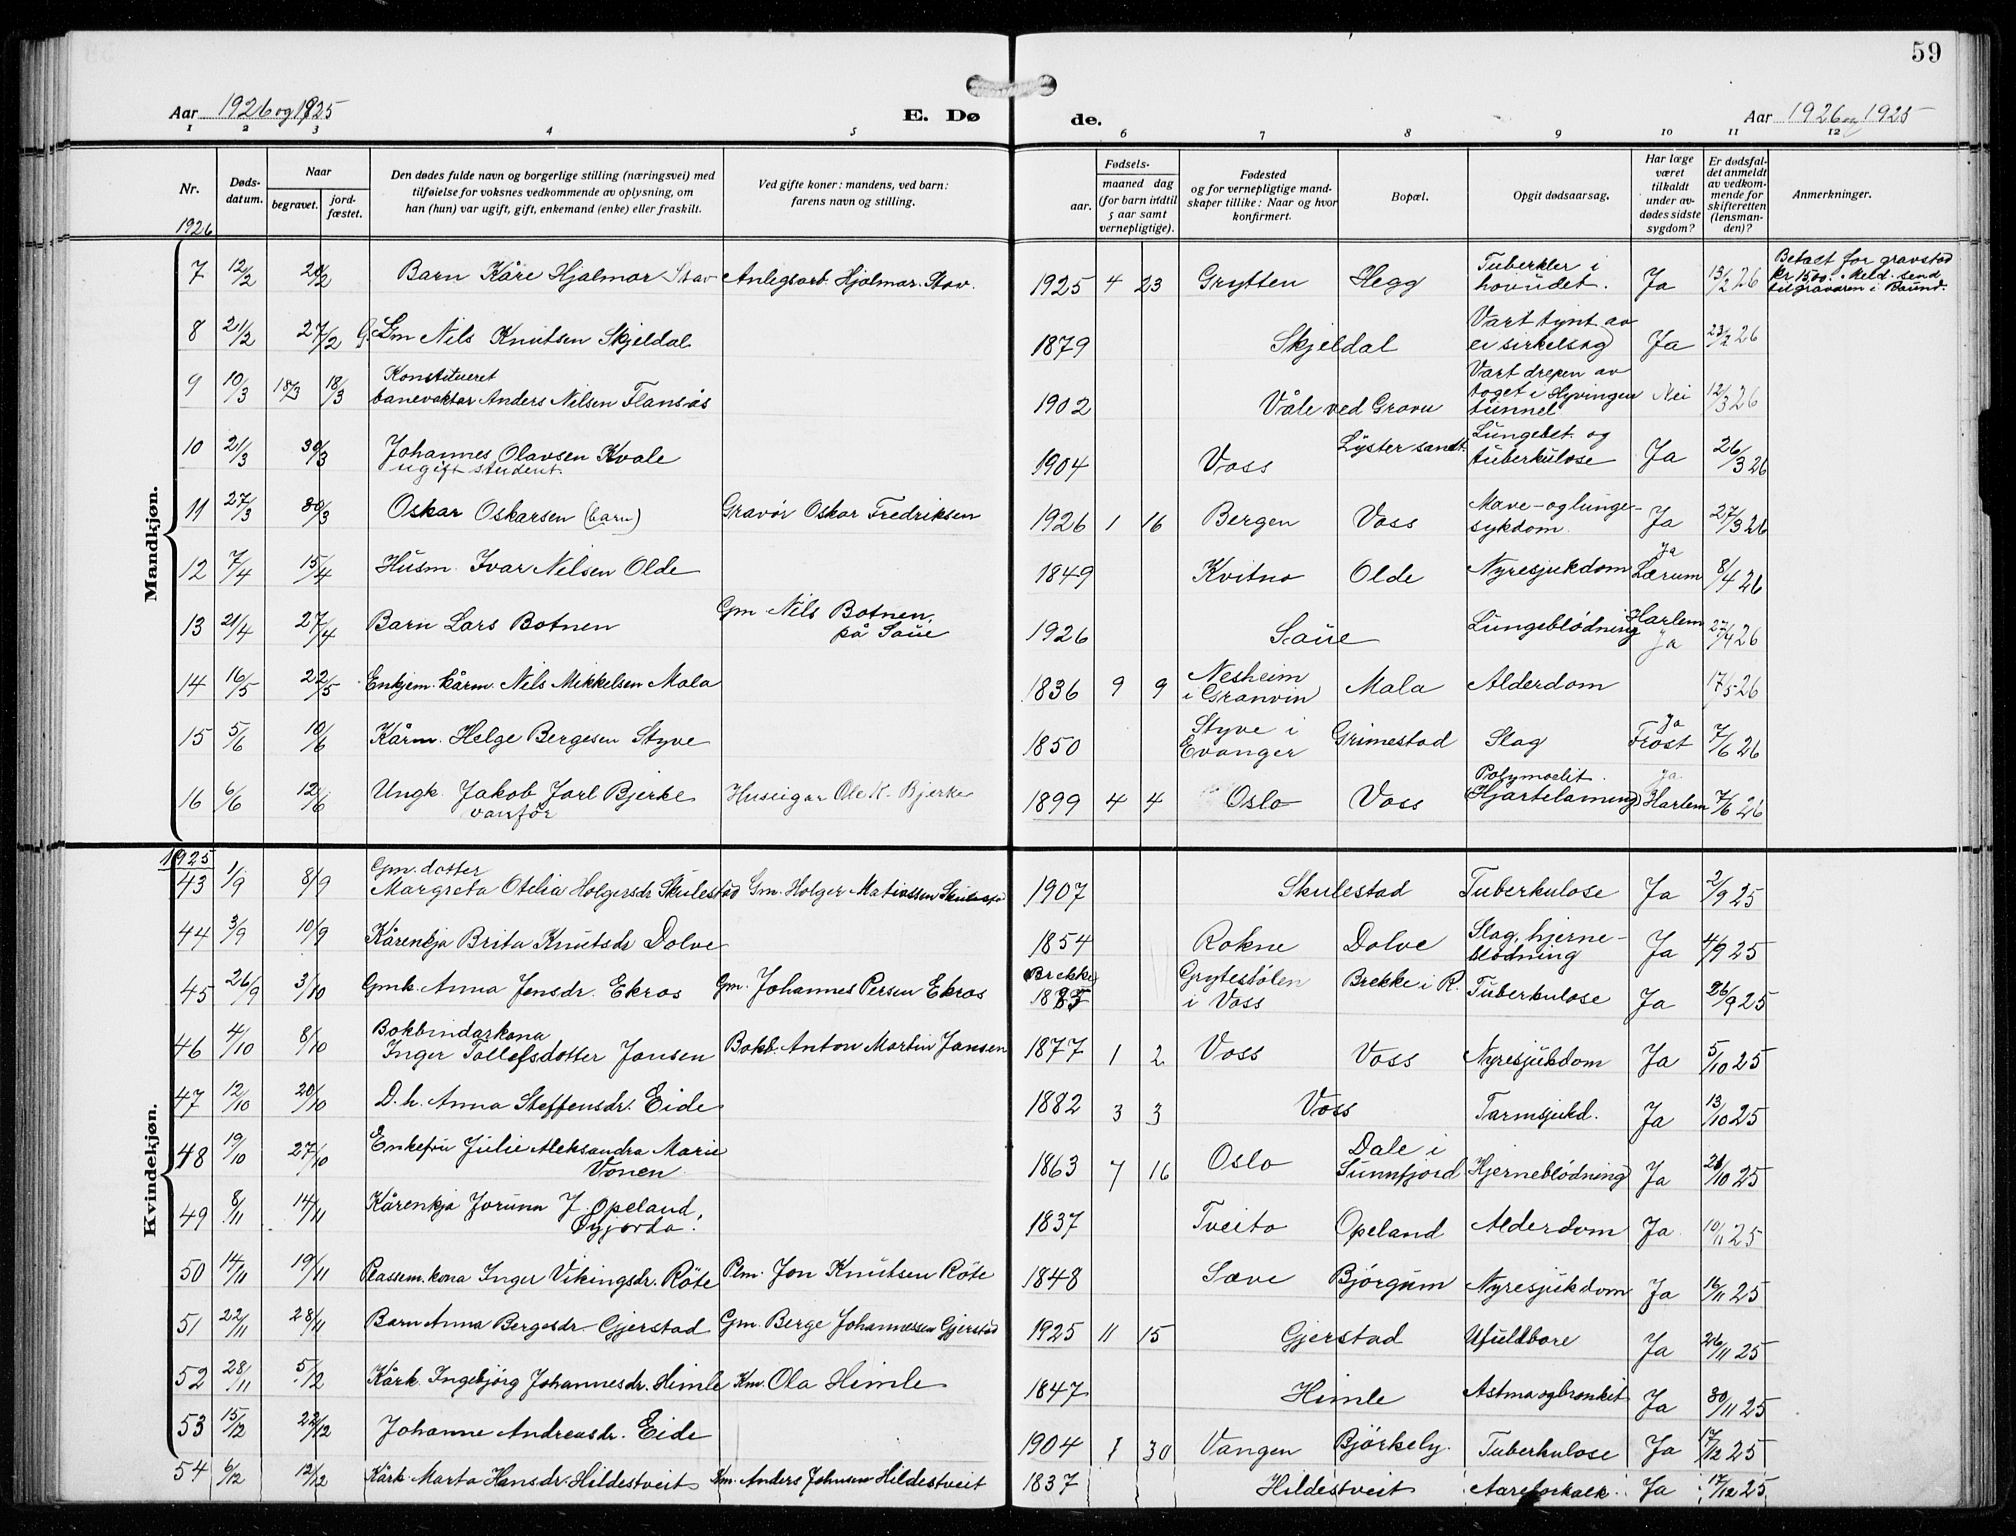 59
Aar 1926 og 1925
E. Dø
de.
Aar 1926 og 1925
1 2 3 4 5 6 7 8 9 10 11 12
Nr. Døds-datum. Naar begravet. jord-fæstet. Den dødes fulde navn og borgerlige stilling (næringsvei) med tilføielse for voksnes vedkommende av oplysning, om han (hun) var ugift, gift, enkemand (enke) eller fraskilt. Ved gifte koner: mandens, ved barn: farens navn og stilling. Fødsels- aar. maaned dag (for barn indtil 5 aar samt vernepligtige). Fødested og for vernepligtige mandskaper tillike: Naar og hvor konfirmert. Bopæl. Opgit dødsaarsag. Har læge været tilkaldt under avdødes sidste sygdom? Er dødsfaldet anmeldt av vedkommende for skifteretten (lensmanden)? Anmerkninger.
1926
Mandkjøn.
7 12/2 20/2 Barn Kåre Hjalmar Stav Anlegsarb. Hjalmar Stav. 1925 4 23 Grytten Hegg Tuberkler i hovudet. Ja 13/2 26 Betalt for gravstad kr 15.00. Meld. send til gravaren i Raund.
8 21/2 27/2 Gm Nils Knutsen Skjeldal 1879 Skjeldal Vart tynt av ei sirkelsag Ja 23/2 26
9 10/3 18/3 18/3 Konstitueret banevaktar Anders Nilsen Flansås 1902 Våle ved Gravu Vart drepen av toget i Hyvingen tunnel Nei 12/3 26
10 21/3 30/3 Johannes Olavsen Kvale ugift student. 1904 Voss Lyster sanat. Lungebet. og tuberkulose Ja 26/3 26
11 27/3 30/3 Oskar Oskarsen (barn) Gravør Oskar Fredriksen 1926 1 16 Bergen Voss Mave- og lunge-sykdom Ja 27/3 26
12 7/4 15/4 Husm. Ivar Nilsen Olde 1849 Kvitno Olde Nyresjukdom ja Lærum 8/4 26
13 21/4 27/4 Barn Lars Botnen Gm Nils Botnen, på Saue 1926 Saue Lungeblödning Harlem Ja 27/4 26
14 16/5 22/5 Enkjem. kårm. Nils Mikkelsen Mala 1836 9 9 Nesheim i Granvin Mala Alderdom 17/5 26
15 5/6 10/6 Kårm. Helge Bergesen Styve 1850 Styve i Evanger Grimestad Slag Ja Frost 7/6 26
16 6/6 12/6 Ungk. Jakob Jarl Bjerke vanfør Huseigar Ole K. Bjerke 1899 4 4 Oslo Voss Polymoelit. (Hjartelaming) ja Harlem 7/6 26
1925
Kvindekjøn.
43 1/9 8/9 Gm. dotter Margreta Otelia Holgersdr Skulestad Gm. Holger Matiassen Skulestad 1907 Skulestad Tuberkulose Ja 2/9 25
44 3/9 10/9 Kårenkja Brita Knutsdr Dolve 1854 Rokne Dolve Slag, hjerne-blödning Ja 4/9 25
45 26/9 3/10 Gmk. Anna Jensdr. Ekros Gm. Johannes Persen Ekros Brekke Grytestølen i Voss Brekke i R. Tuberkulose Ja 26/9 25
46 4/10 8/10 Bokbindarkona Inger Tollefsdotter Jansen Bokb. Anton Martin Jansen 1877 1 2 Voss Voss Nyresjukdom Ja 5/10 25
47 12/10 20/10 D. h. Anna Steffensdr. Eide 1882 3 3 Voss Tarmsjukd. Ja 13/10 25
48 19/10 27/10 Enkefru Julie Aleksandra Marie Vonen 1863 7 16 Oslo Dale i Sunnfjord Hjerneblödning Ja 21/10 25
49 8/11 14/11 Kårenkja Jorunn J. Opeland, Øyjorda. 1837 Tveito Opeland Alderdom Ja 10/11 25
50 14/11 19/11 Plassem. kona Inger Vikingsdr. Röte Plm. Jon Knutsen Röte 1848 Sæve Bjørgum Nyresjukdom Ja 16/11 25
51 22/11 28/11 Barn Anna Bergesdr. Gjerstad Gm. Berge Johannessen Gjerstad 1925 11 15 Gjerstad Ufuldbore Ja 26/11 25
52 28/11 5/12 Kårk. Ingebjørg Johannesdr. Himle Km. Ola Himle 1847 Himle Astma og bronkit Ja 30/11 25
53 15/12 22/12 Johanne Andreasdr. Eide 1904 1 30 Vangen Bjørkely. Tuberkulose Ja 17/12 25
54 6/12 12/12 Kårk. Marta Hansdr. Hildestveit Km. Anders Johnsen Hildestveit 1837 Hildestveit Aareforkalk. Ja 17/12 25